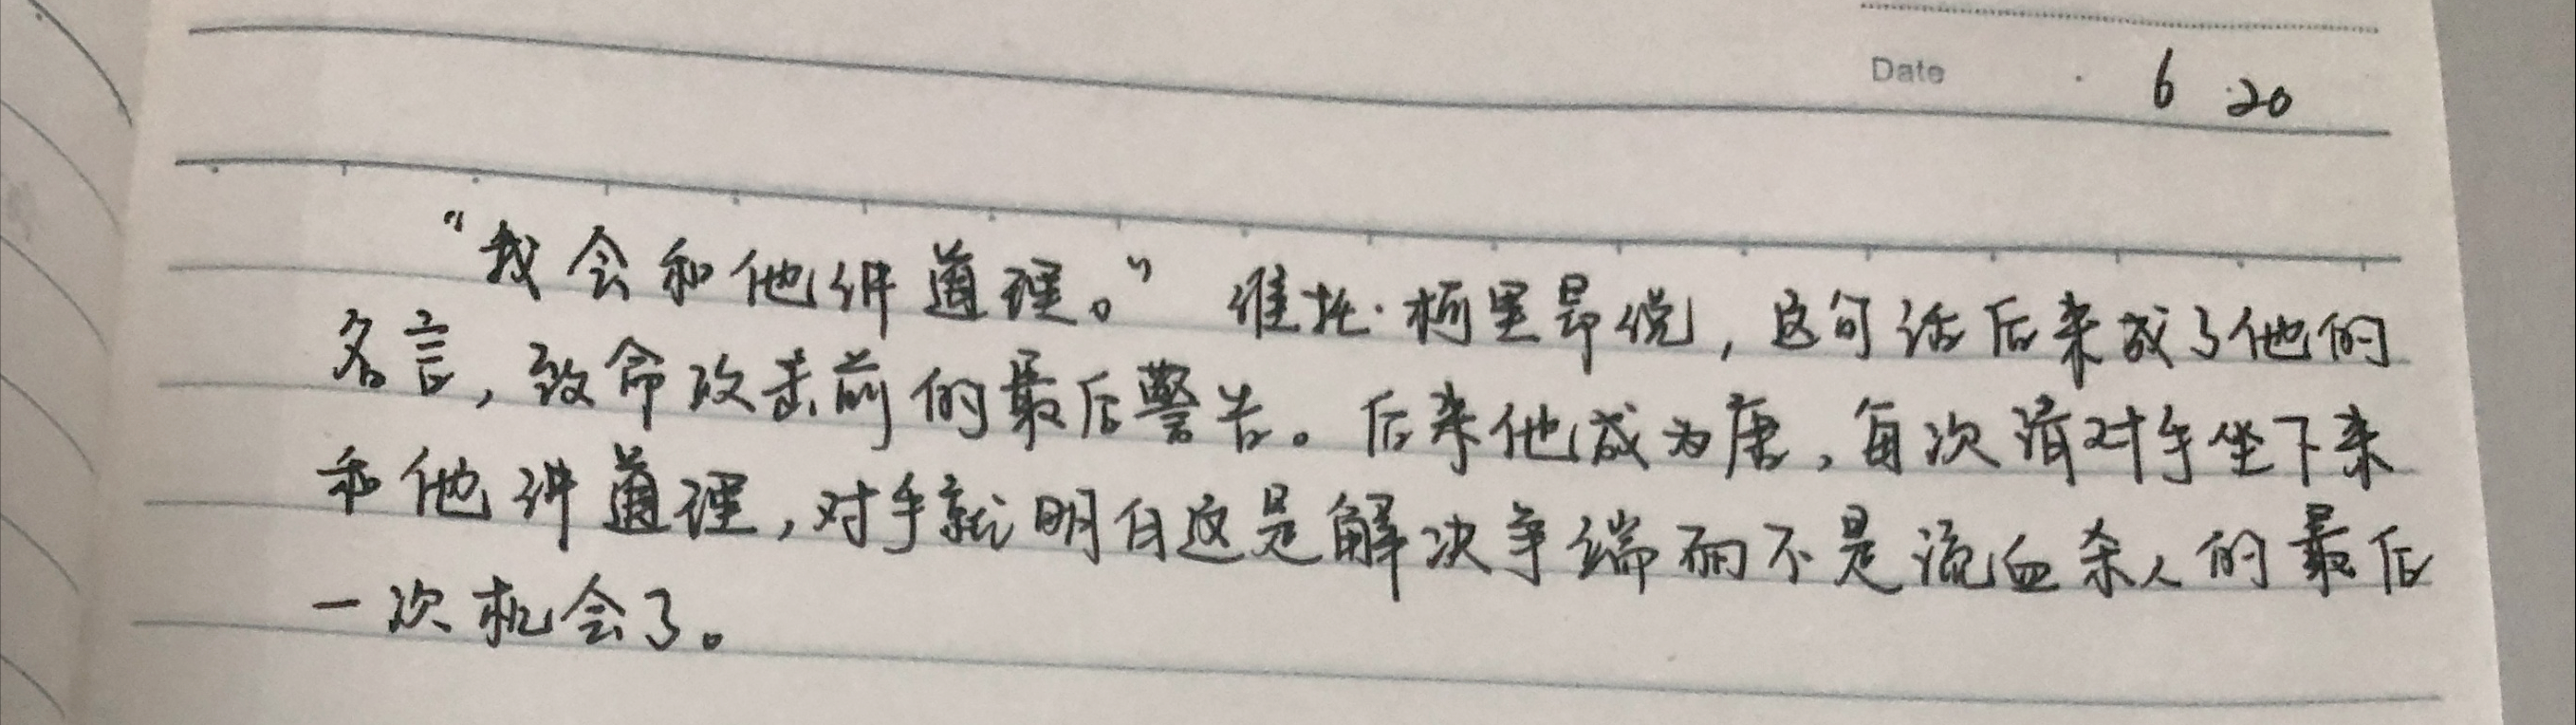 Date 6 20
“我会和他讲道理。”维托·柯里昂说,这句话后来成了他的
名言,致命攻击前的最后警告。后来他成为唐,每次请对手坐下来
和他讲道理,对手就明白这是解决争端而不是流血杀人的最后
一次机会了。